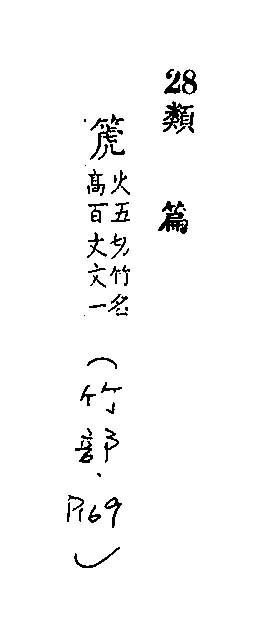 28類篇
箎
火五切竹名
高百丈文一
(竹部.P169)